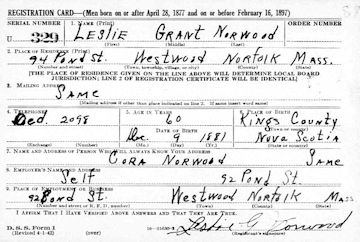 REGISTRATION CARD—(Men born on or after April 28, 1877 and on or before February 16, 1897)
SERIAL NUMBER 1. NAME (Print) ORDER NUMBER
U 329 LESLIE GRANT NORWOOD
(First) (Middle) (Last)
2. PLACE OF RESIDENCE (Print)
94 Pond St. Westwood Norfolk Mass.
(Number and street) (Town, township, village, or city) (County) (State)
[THE PLACE OF RESIDENCE GIVEN ON THE LINE ABOVE WILL DETERMINE LOCAL BOARD
JURISDICTION; LINE 2 OF REGISTRATION CERTIFICATE WILL BE IDENTICAL]
3. MAILING ADDRESS
SAME
[Mailing address if other than place indicated on line 2. If same insert word same]
4. TELEPHONE 5. AGE IN YEARS 6. PLACE OF BIRTH
Ded 2098 60 Kings County
DATE OF BIRTH (Town or county)
Dec. 9 1881 Nova Scotia
(Exchange) (Number) (Mo.) (Day) (Yr.) (State or country)
7. NAME AND ADDRESS OF PERSON WHO WILL ALWAYS KNOW YOUR ADDRESS
CORA NORWOOD SAME
8. EMPLOYER'S NAME AND ADDRESS
Self 92 Pond St.
9. PLACE OF EMPLOYMENT OR BUSINESS
92 Pond St. Westwood Norfolk Mass
(Number and street or R. F. D. number) (Town) (County) (State)
I AFFIRM THAT I HAVE VERIFIED ABOVE ANSWERS AND THAT THEY ARE TRUE.
D. S. S. Form 1
(Revised 4-1-42) (over) Leslie G. Norwood